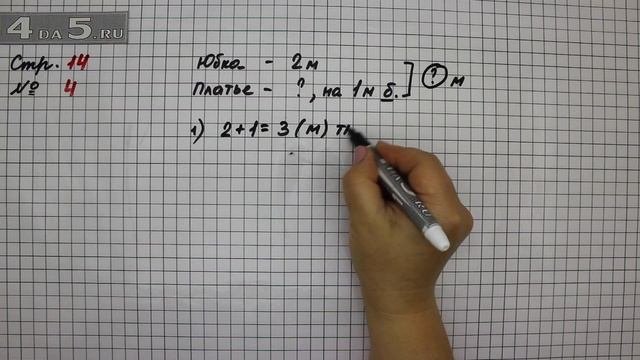 4DA5.RU
Стр. 14
№ 4
Юбка - 2 м
Платье - ?, на 1 м б. ] ? м
1) 2 + 1 = 3 (м) тк